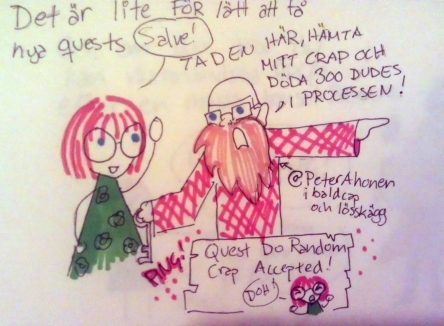 Det är lite FÖR lätt att få
nya quests
Salve!
TA DEN HÄR, HÄMTA
MITT CRAP OCH
DÖDA 300 DUDES
I PROCESSEN!
@PeterAhonen
i baldcap
och lösskägg
PLING!
Quest Do Random
Crap Accepted!
DOH!